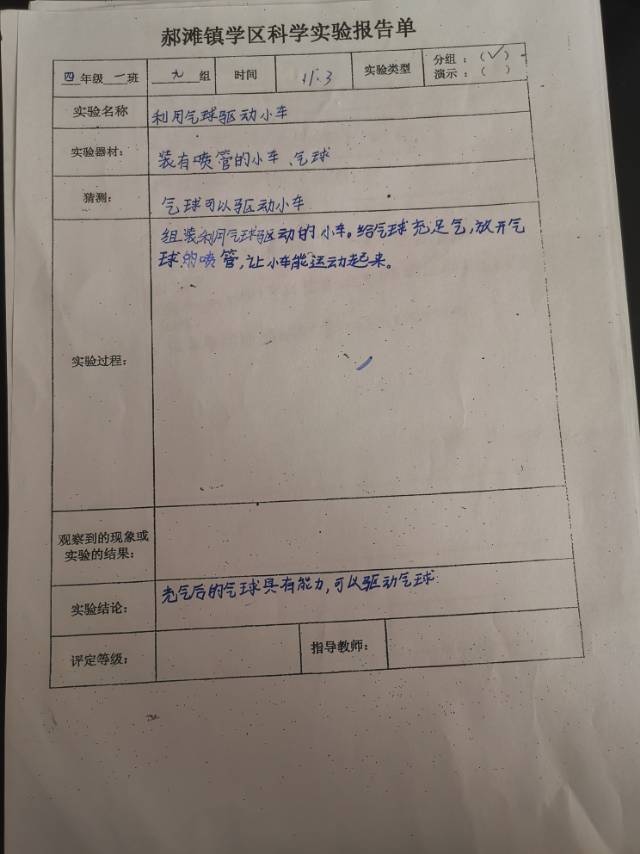 郝滩镇学区科学实验报告单
四年级 一 班 九 组 时间 11.3 实验类型 分组：（✓）
演示：（ ）
实验名称 利用气球驱动小车
实验器材： 装有喷管的小车、气球
猜测： 气球可以驱动小车
组装利用气球驱动的小车。给气球充足气,放开气
球的喷管,让小车能运动起来。
实验过程：
观察到的现象或
实验的结果：
实验结论： 充气后的气球具有能力,可以驱动气球
评定等级： 指导教师：